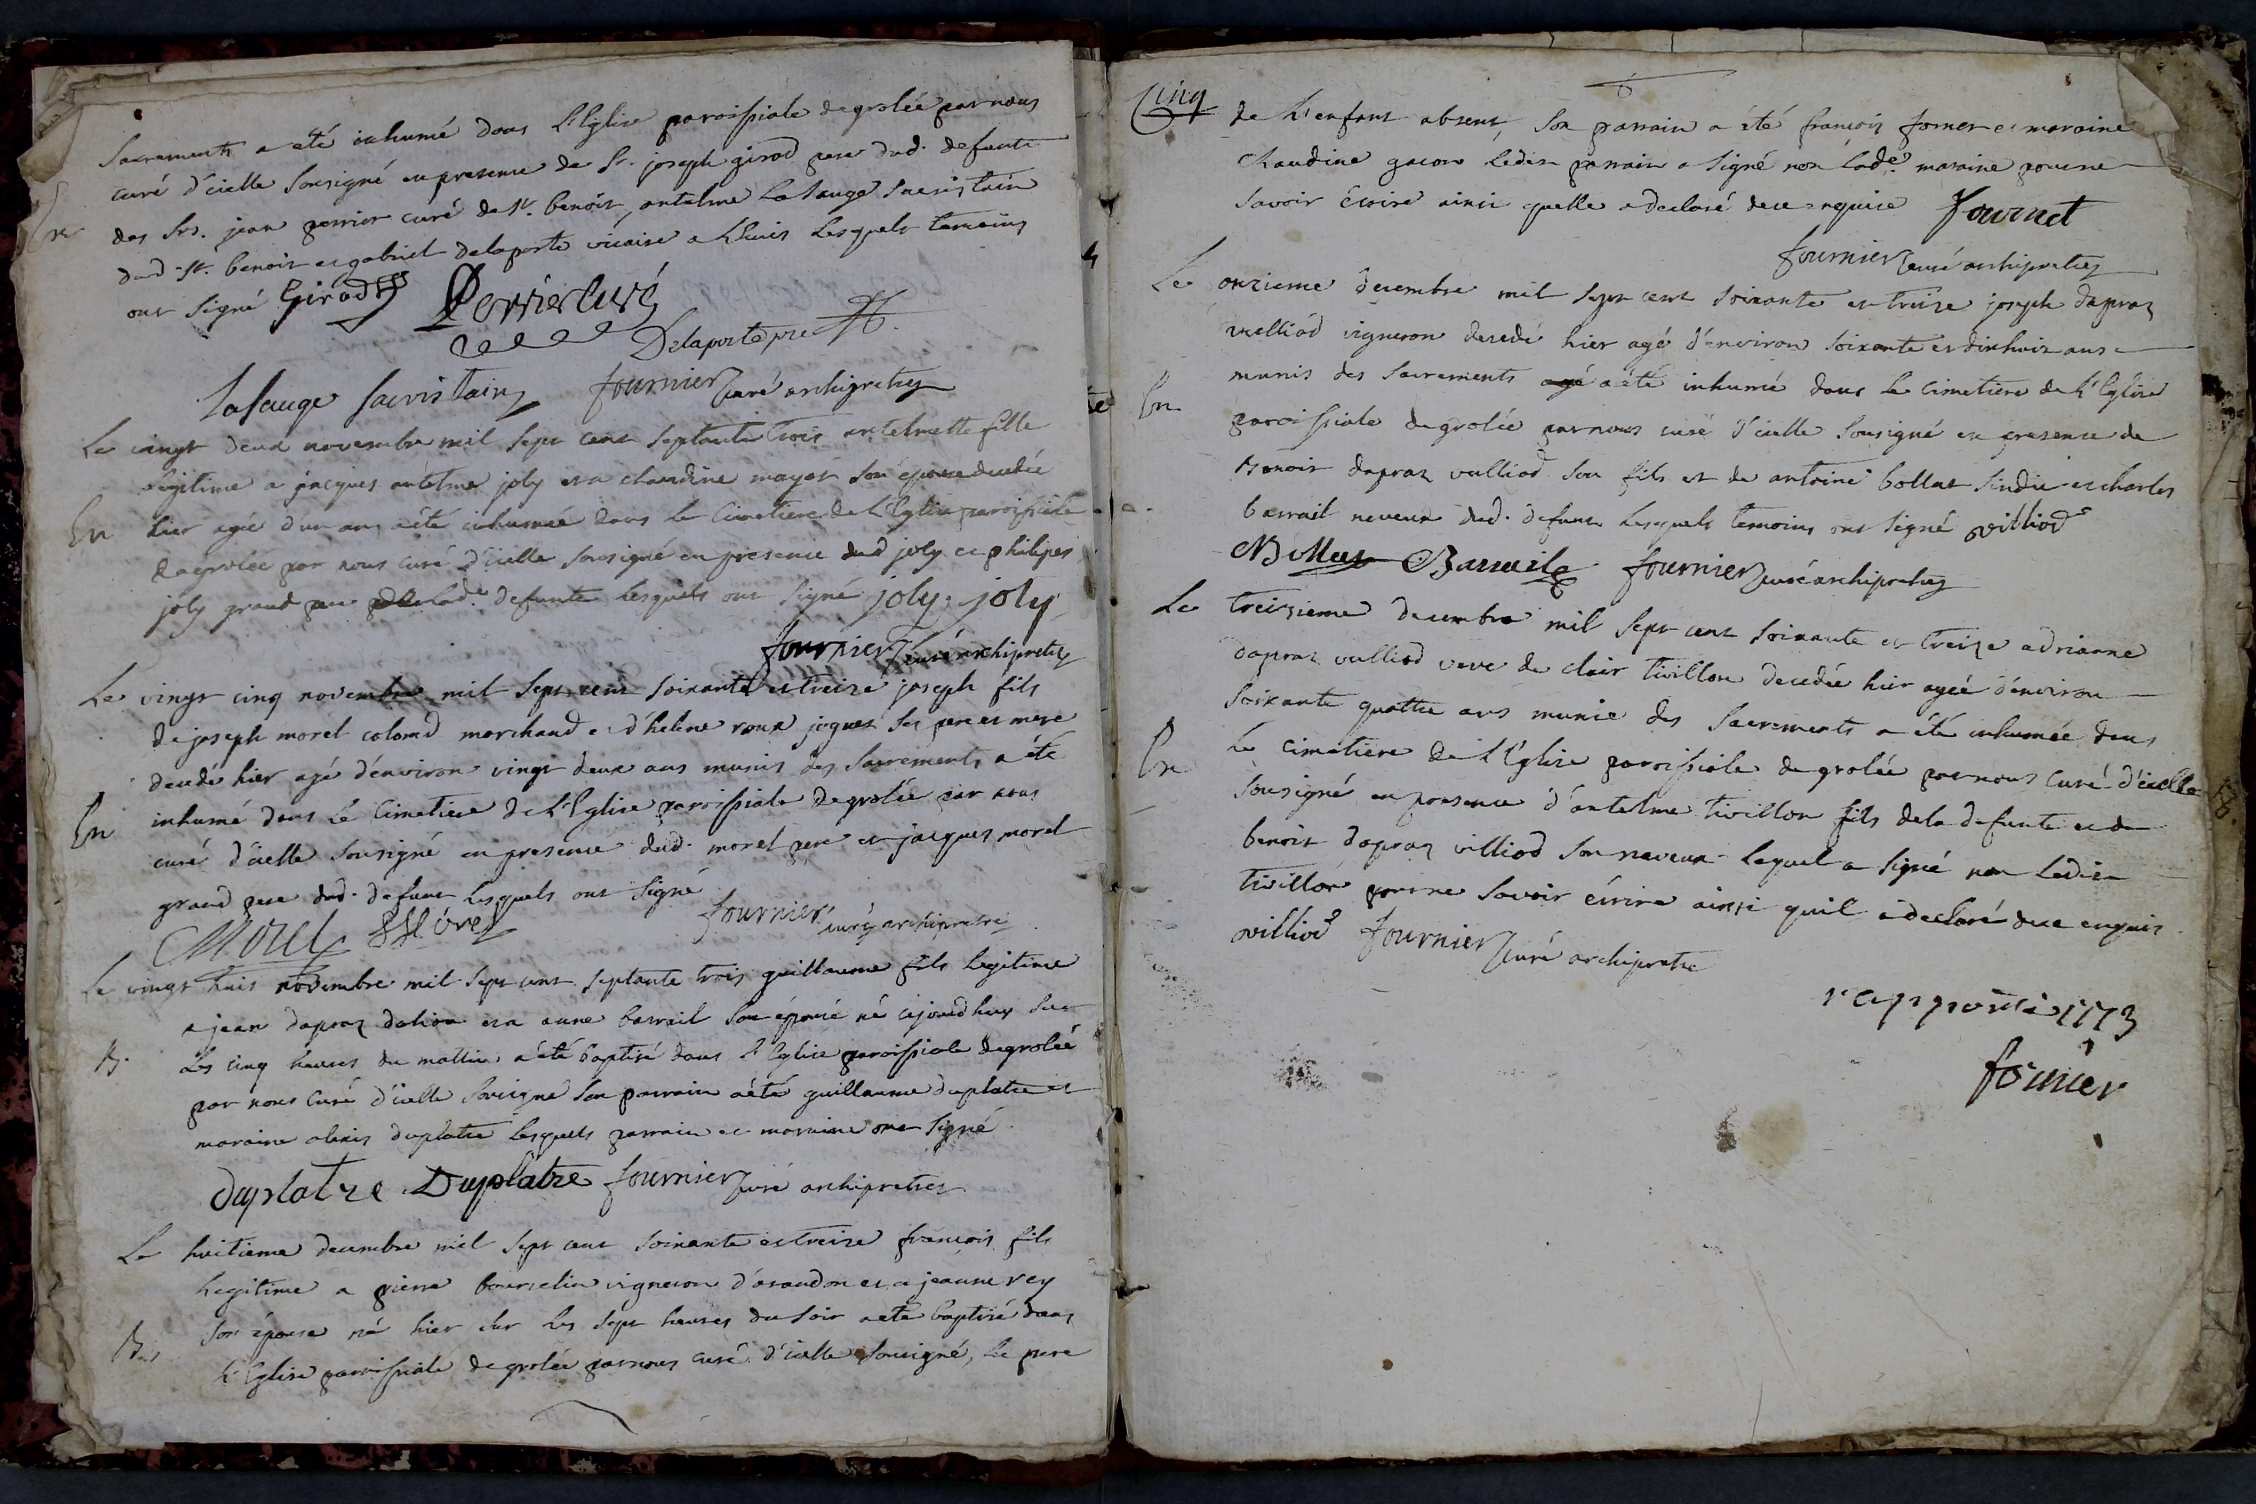 Sacrements a été inhumé dans L'Eglise paroissiale de grolée par nous
curé d'icelle Sousigné en presence de Sr. joseph girod pere dud. defunt
En
des Srs. jean perrier curé de St. benoit, antelme Lasauge Sacristain
dud. St. benoit et gabriel delaporte vicaire a Lhuis Lesquels temoins
ont Signé Girod Perrier Curé
Delaporte pre
Lasauge Sacristain fournier curé archipretre
Le vingt deux novembre mil Sept cent Septante trois antelmette fille
Legitime a jacques antelme joly et a claudine mayot Son épouse decedée
En hier agée d'un an, a été inhumée dans Le Cimetiere de L'Eglise paroissiale
de grolée par nous curé d'icelle Sousigné en presence dud joly et philipes
joly grand pere de Lade. defunte Lesquels ont Signé joly. joly
fournier curé archipretre
Le vingt cinq novembre mil Sept cent Soixante et treize joseph fils
de joseph morel colomd marchand et d'helene roux joguet Ses pere et mere
decedé hier agé d'environ vingt deux ans munis des Sacrements, a été
En inhumé dans Le Cimetiere de L'Eglise paroissiale de grolée par nous
curé d'icelle Sousigné en presence dud. morel pere et jacques morel
grand pere dud. defunt Lesquels ont Signé
Morel Morel fournier curé archipretre
Le vingt huit novembre mil Sept cent Septante trois guillaume fils Legitime
a jean dapraz dohion et a anne barrail Son épouse né cejourdhuy Sur
B. Les cinq heures du mattin a été baptisé dans L'Eglise paroissiale de grolée
par nous Curé d'icelle Sousigné Son parrain a été guillaume duplatre et
maraine alexis duplatre Lesquels parrain et marraine ont Signé
duplatre Duplatre fournier curé archipretre
Le huitieme decembre mil Sept cent Soixante et treize françois fils
Legitime a pierre bourselin vigneron d'arandon et a jeanne rey
Son épouse né hier Sur Les Sept heures du Soir a eté baptisé dans
Bap L'Eglise paroissiale de grolée par nous curé d'icelle Sousigné, Le pere
Cinq 6
de L'enfant absent, Son parrain a été françois fornet et maraine
Claudine gacon Ledit parrain a Signé non Lade. maraine pour ne
Savoir Ecrire ainsi quelle a declaré de ce enquise fournet
fournier curé archipretre
Le onzieme decembre mil Sept cent Soixante et treize joseph dapraz
vuelliod vigneron decedé hier agé d'environ Soixante et dixhuit ans
En munis des Sacrements agé a été inhumé dans Le Cimetiere de L'Eglise
paroissiale de grolée par nous curé d'icelle Sousigné en presence de
Benoit dapraz vulliod Son fils et de antoine bollut Sindic et charles
barrail neveux dud. defunt Lesquels temoins ont Signé villiod
Bollut Barrail fournier curé archipretre
Le treizieme decembre mil Sept cent Soixante et treize adrianne
dapraz vulliod veve de clair tivillon decedée hier agée d'environ
Soixante quattre ans munie des Sacrements a été inhumée dans
En Le cimetiere de L'Eglise paroissiale de grolée par nous Curé d'icelle
Sousigné en presence d'antelme tivillon fils de la defunte et de
benoit dapraz villiod Son neveux Lequel a Signé non Ledit
tivillon pour ne Savoir écrire ainsi quil a declaré de ce enquis
villiod fournier curé archipretre
rapporté 1773